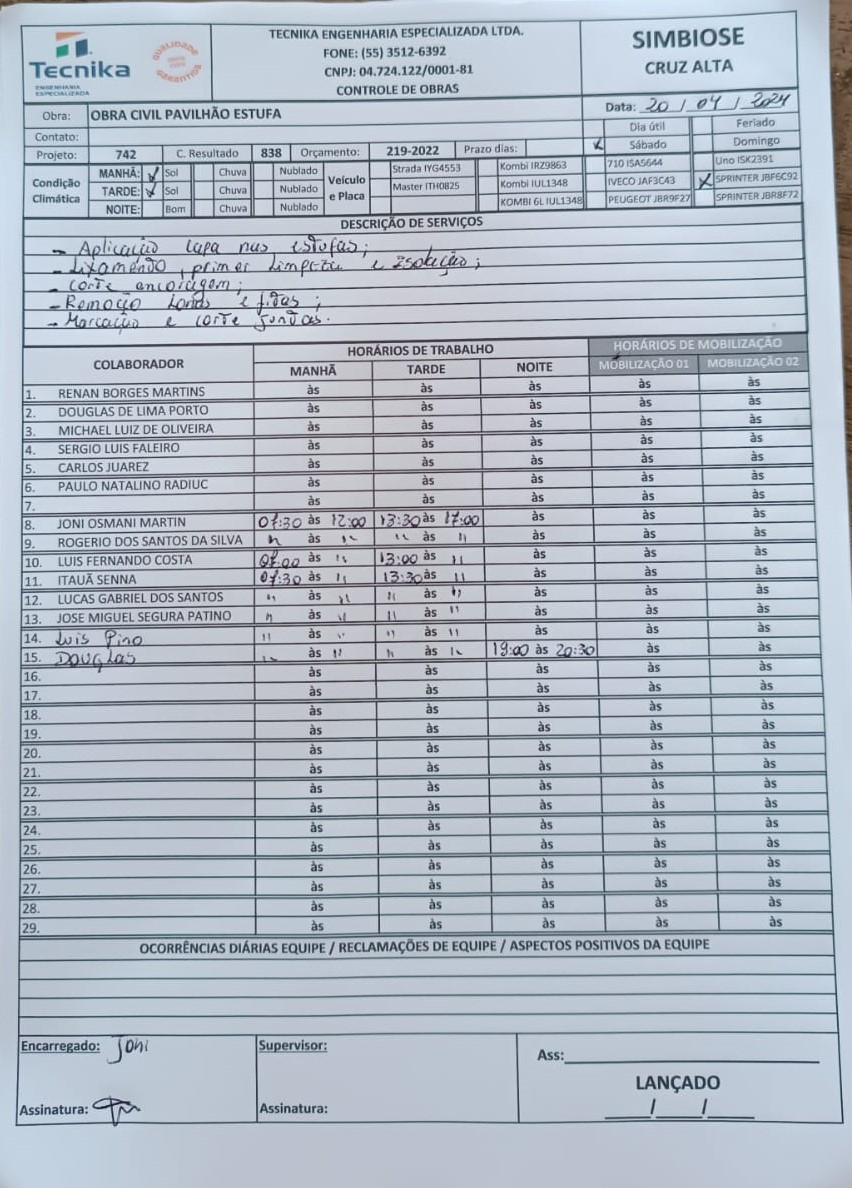 Tecnika
ENGENHARIA
ESPECIALIZADA
QUALIDADE
GARANTIDA
TECNIKA ENGENHARIA ESPECIALIZADA LTDA.
FONE: (55) 3512-6392
CNPJ: 04.724.122/0001-81
CONTROLE DE OBRAS
SIMBIOSE
CRUZ ALTA
Obra: OBRA CIVIL PAVILHÃO ESTUFA
Data: 20 / 04 / 2024
Contato:
Dia útil Feriado
Sábado Domingo
Projeto: 742 C. Resultado 838 Orçamento: 219-2022 Prazo dias:
Condição Climática
MANHÃ: Sol Chuva Nublado
TARDE: Sol Chuva Nublado
NOITE: Bom Chuva Nublado
Veículo e Placa
Strada IYG4553 Kombi IRZ9863 710 ISA5644 Uno ISK2391
Master ITH0825 Kombi IUL1348 IVECO JAF3C43 SPRINTER JBF6C92
KOMBI 6L IUL1348 PEUGEOT JBR9F27 SPRINTER JBR8F72
DESCRIÇÃO DE SERVIÇOS
- Aplicação capa nas estufas;
- Lixamendo, primer limpeza e Isolação;
- Corte ancoragem;
- Remoção Lonas e fitas;
- Marcação e corte Jundas.
COLABORADOR HORÁRIOS DE TRABALHO HORÁRIOS DE MOBILIZAÇÃO
MANHÃ TARDE NOITE MOBILIZAÇÃO 01 MOBILIZAÇÃO 02
1. RENAN BORGES MARTINS às às às às às
2. DOUGLAS DE LIMA PORTO às às às às às
3. MICHAEL LUIZ DE OLIVEIRA às às às às às
4. SERGIO LUIS FALEIRO às às às às às
5. CARLOS JUAREZ às às às às às
6. PAULO NATALINO RADIUC às às às às às
7. às às às às às
8. JONI OSMANI MARTIN 07:30 às 12:00 13:30 às 17:00 às às às
9. ROGERIO DOS SANTOS DA SILVA " às " " às " às às às
10. LUIS FERNANDO COSTA 07:00 às " 13:00 às " às às às
11. ITAUÃ SENNA 07:30 às " 13:30 às " às às às
12. LUCAS GABRIEL DOS SANTOS " às " " às " às às às
13. JOSE MIGUEL SEGURA PATINO " às " " às " às às às
14. Luis Pino " às " " às " às às às
15. Douglas " às " " às " 19:00 às 20:30 às às
16. às às às às às
17. às às às às às
18. às às às às às
19. às às às às às
20. às às às às às
21. às às às às às
22. às às às às às
23. às às às às às
24. às às às às às
25. às às às às às
26. às às às às às
27. às às às às às
28. às às às às às
29. às às às às às
OCORRÊNCIAS DIÁRIAS EQUIPE / RECLAMAÇÕES DE EQUIPE / ASPECTOS POSITIVOS DA EQUIPE
Encarregado: Joni
Supervisor:
Ass:
LANÇADO
Assinatura:
Assinatura:
/ /